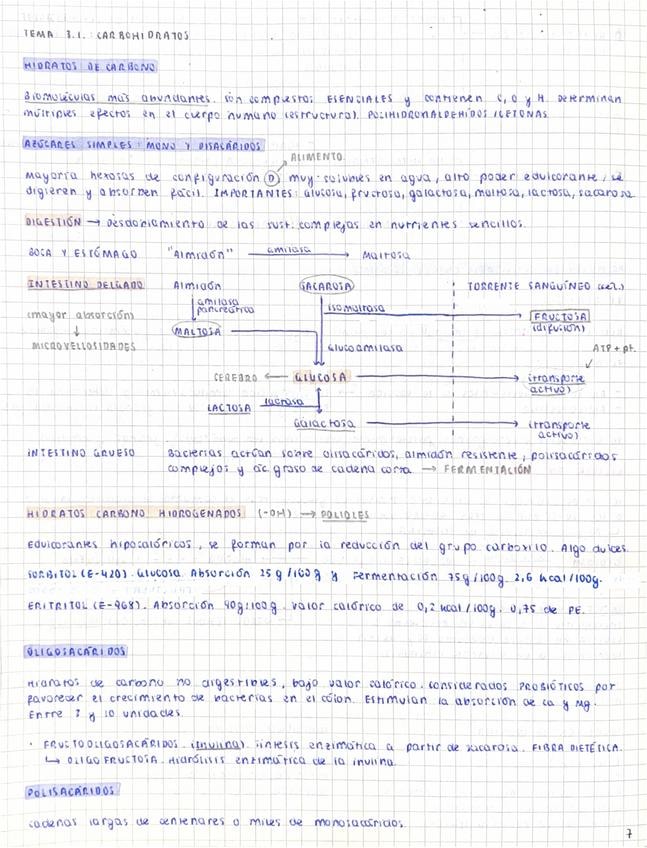 TEMA 3.1. CARBOHIDRATOS
HIDRATOS DE CARBONO
Biomoléculas más abundantes. Son compuestos ESENCIALES y contienen C, O y H. Determinan
múltiples efectos en el cuerpo humano (estructura). POLIHIDROXIALDEHIDOS/CETONAS
AZÚCARES SIMPLES: MONO Y DISACÁRIDOS
ALIMENTO.
Mayoría hexosas de configuración D muy solubles en agua, alto poder edulcorante, se
digieren y absorben fácil. IMPORTANTES: Glucosa, fructosa, galactosa, maltosa, lactosa, sacarosa
DIGESTIÓN → Desdoblamiento de las sust. complejas en nutrientes sencillos.
BOCA Y ESTÓMAGO "Almidón" amilasa → Maltosa
INTESTINO DELGADO Almidón SACAROSA TORRENTE SANGUÍNEO
(mayor absorción) amilasa pancreática isomaltasa FRUCTOSA (difusión)
↓
MICROVELLOSIDADES MALTOSA Glucoamilasa ATP + pt.
CEREBRO ← GLUCOSA → (transporte activo)
LACTOSA lactasa
Galactosa → (transporte activo)
INTESTINO GRUESO Bacterias actúan sobre olisacáridos, almidón resistente, polisacáridos
complejos y ác. graso de cadena corta → FERMENTACIÓN
HIDRATOS CARBONO HIDROGENADOS (-OH) → POLIOLES
Edulcorantes hipocalóricos, se forman por la reducción del grupo carboxilo. Algo dulces.
SORBITOL (E-420). Glucosa. Absorción 25 g/100 g y Fermentación 75g/100g. 2,6 kcal/100g.
ERITRITOL (E-968). Absorción 90g/100g. Valor calórico de 0,2 kcal/100g. 0,75 de PE.
OLIGOSACÁRIDOS
Hidratos de carbono no digestibles, bajo valor calórico. Considerados PROBIÓTICOS por
favorecer el crecimiento de bacterias en el cólon. Estimulan la absorción de Ca y Mg.
Entre 3 y 10 unidades.
· FRUCTOOLIGOSACÁRIDOS. (Inulina). Síntesis enzimática a partir de sacarosa. FIBRA DIETÉTICA.
↳ OLIGOFRUCTOSA. Hidrólisis enzimática de la inulina.
POLISACÁRIDOS
Cadenas largas de centenares o miles de monosacáridos.
7